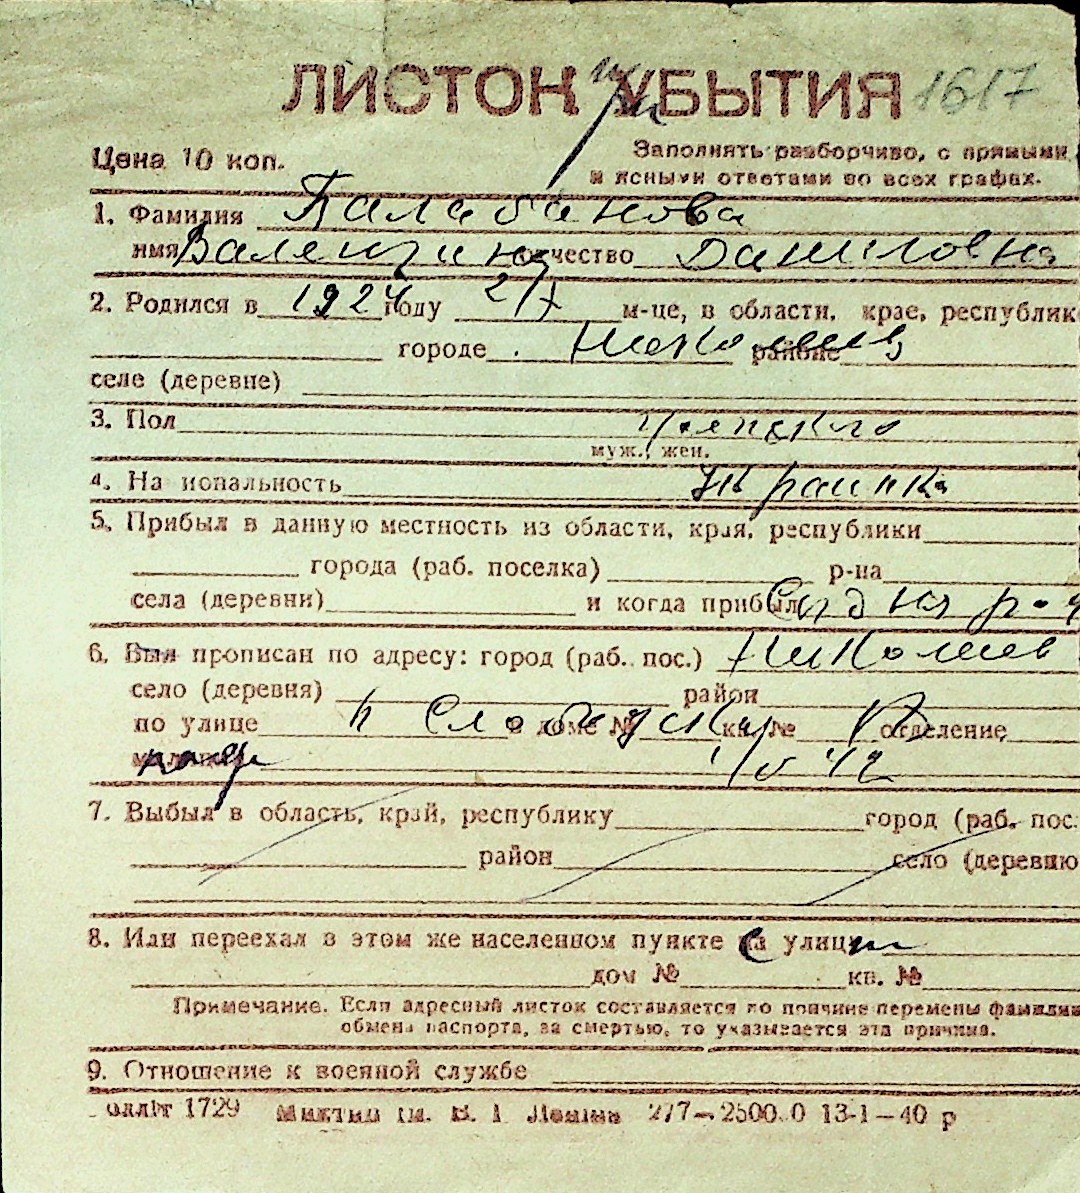 ЛИСТОК УБЫТИЯ 1617
Цена 10 коп.
Заполнять разборчиво, с прямыми
и ясными ответами во всех графах.
1. Фамилия Балабанова
имя Валентина отчество Даниловна
2. Родился в 1924 году 2/X м-це, в области, крае, республик
городе Николаев районе
селе (деревне)
3. Пол женского
муж., жен.
4. На иональность Украинка
5. Прибыл в данную местность из области, края, республики
города (раб. поселка) р-на
села (деревни) и когда прибыл
6. Был прописан по адресу: город (раб. пос.) Николаев
село (деревня) район
по улице доме № кв. № отделение
7. Выбыл в область, край, республику город (раб. пос.
район село (деревню
8. Или переехал в этом же населенном пункте на улицу
дом № кв. №
Примечание. Если адресный листок составляется по причине перемены фамилии
обмена паспорта, за смертью, то указывается эта причина.
9. Отношение к военной службе
1729 В. І. Леніна 277—2500 0 13-1—40 р